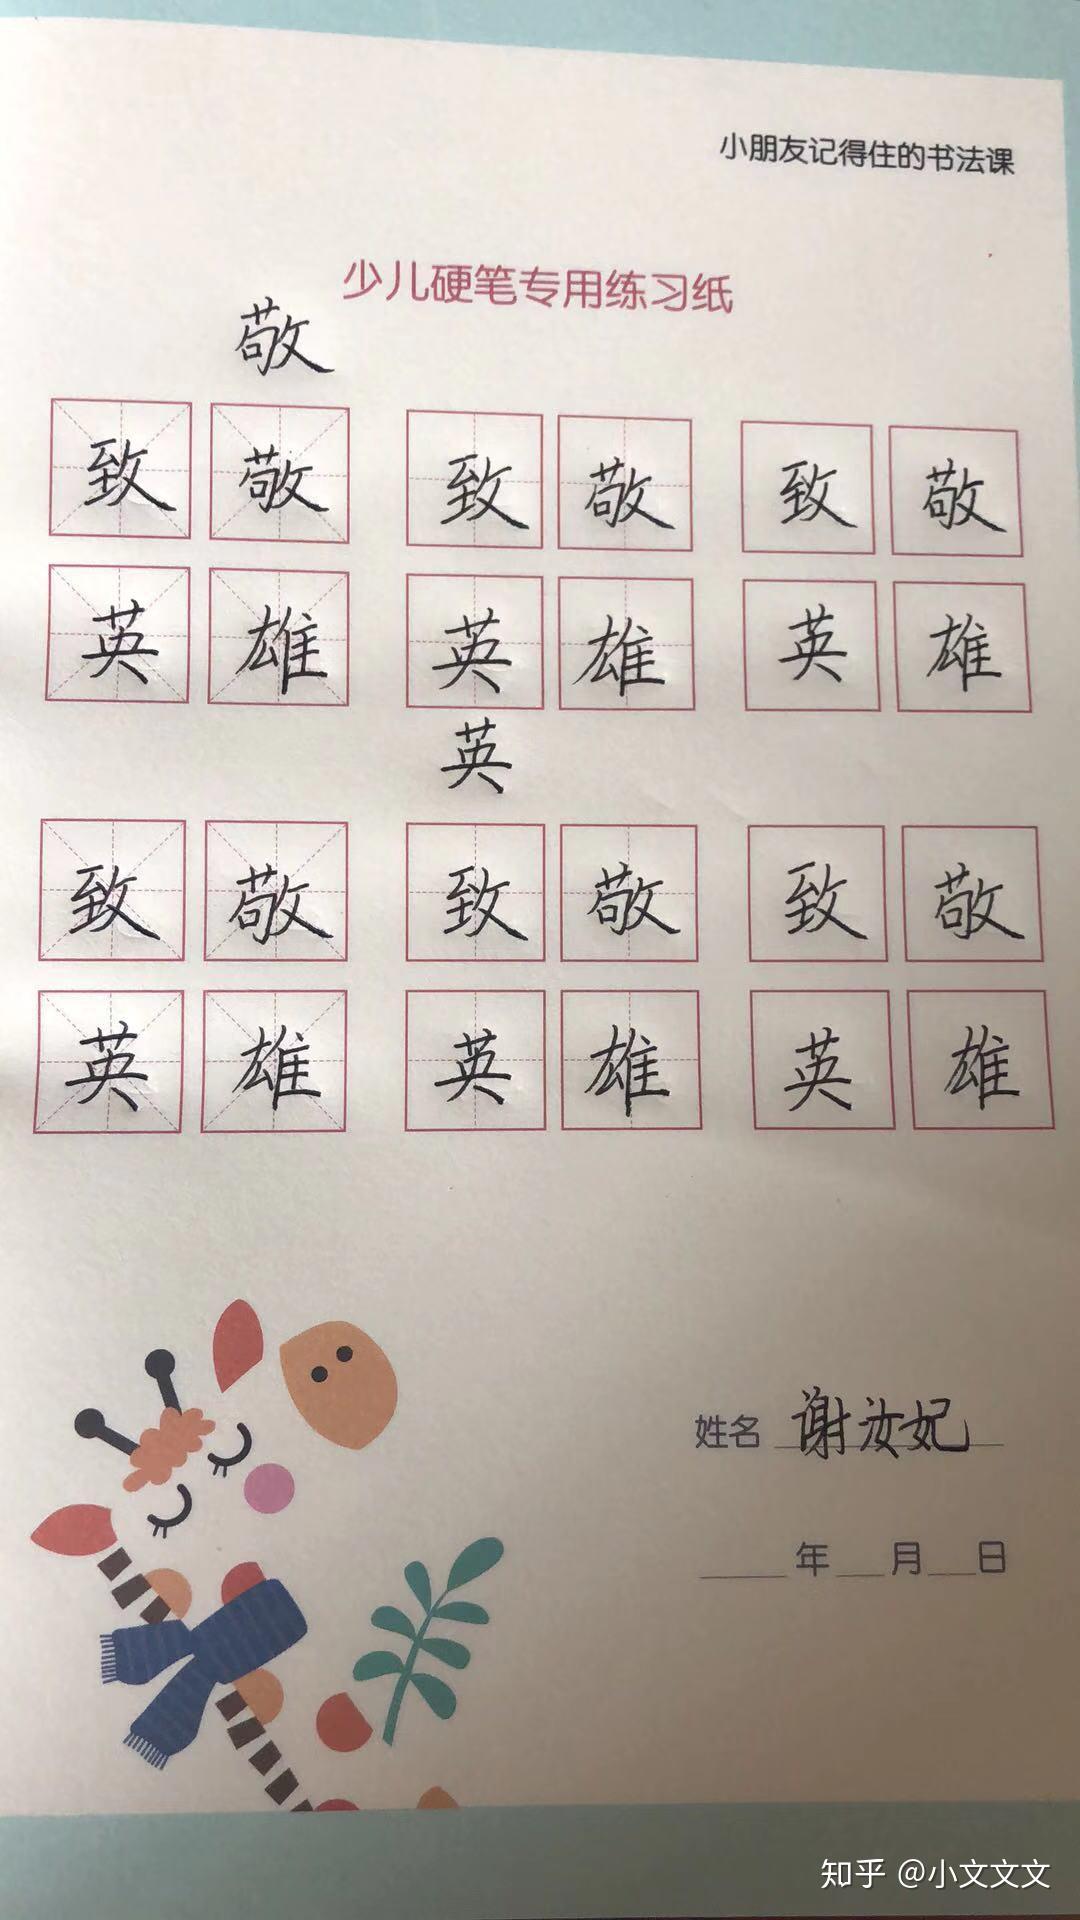 小朋友记得住的书法课
少儿硬笔专用练习纸
敬
致敬 致敬 致敬
英雄 英雄 英雄
英
致敬 致敬 致敬
英雄 英雄 英雄
姓名 谢汝妃
年 月 日
知乎 @小文文文